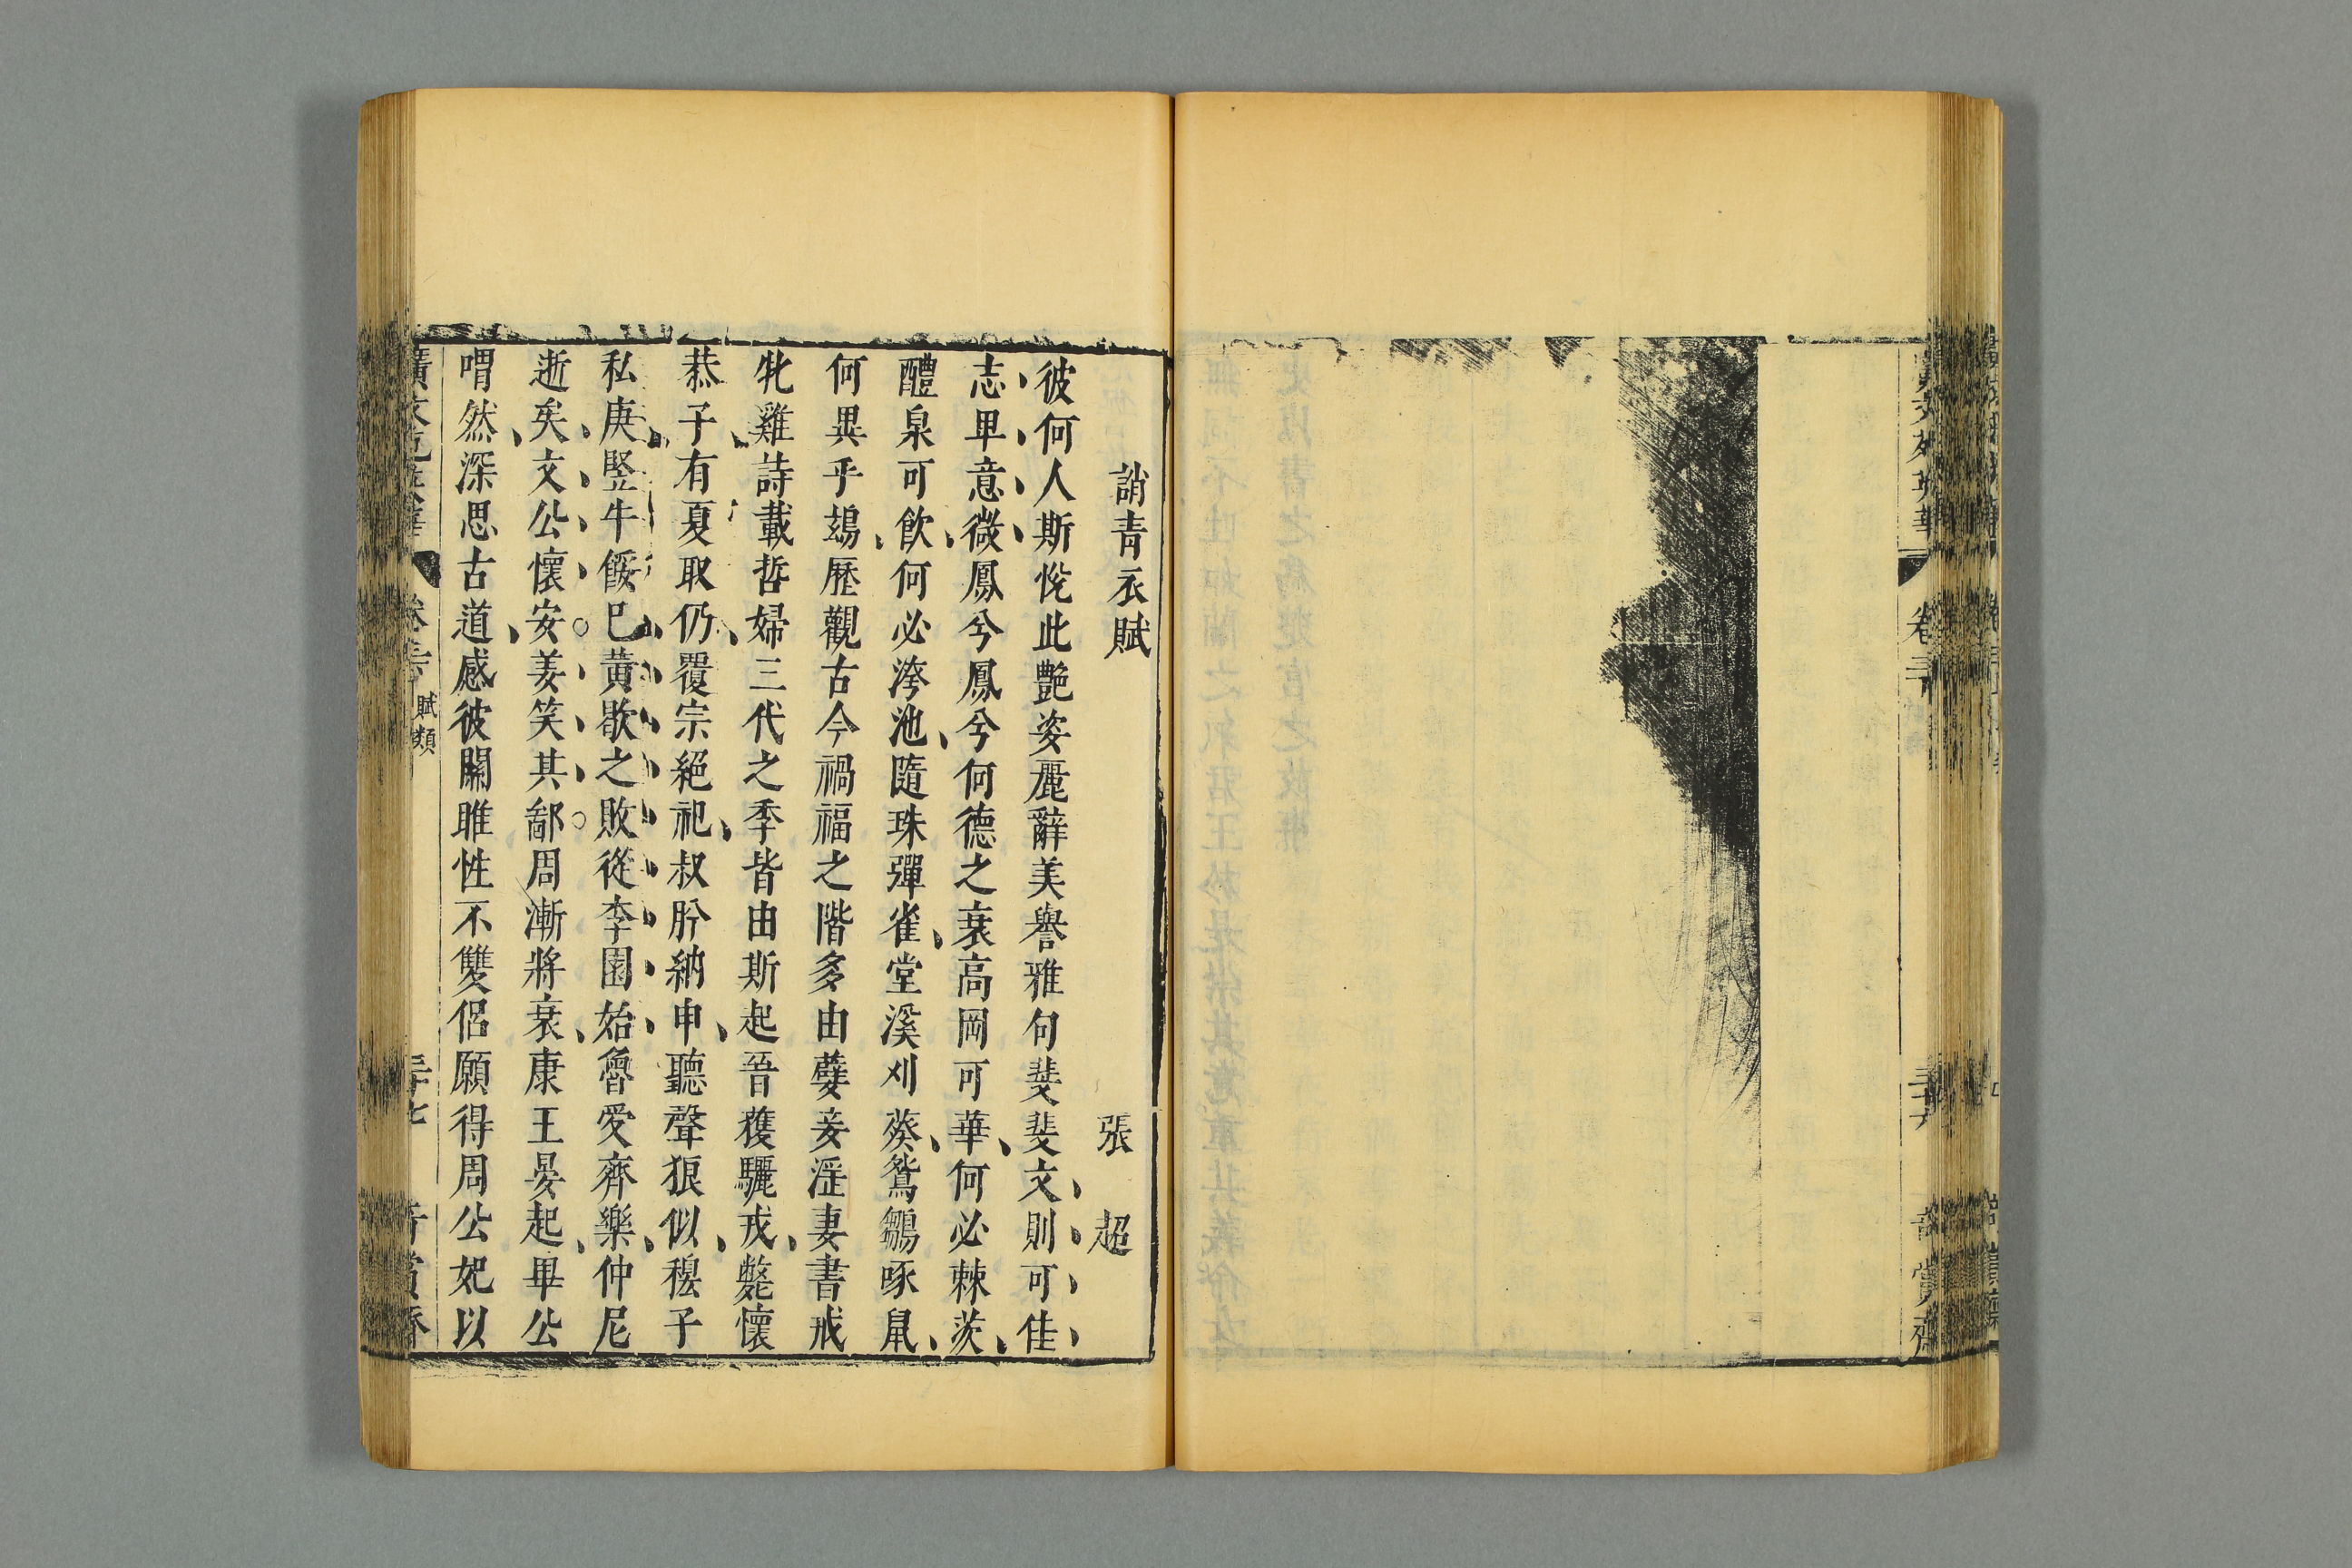 誚青衣賦　張　超
彼何人斯悅此艷姿麗辭美譽雅句斐斐文則可佳
志卑意微鳳兮鳳兮何德之衰高岡可華何必棘茨
醴泉可飲何必洿池隨珠彈雀堂溪刈葵鴛鶵啄鼠
何異乎鴟歷觀古今禍福之階多由孽妾淫妻書戒
牝雞詩載哲婦三代之季皆由斯起晉獲驪戎斃懷
恭子有夏取仍覆宗絕祀叔肸納申聽聲狼似穆子
私庚豎牛餒已黃歇之敗從李園始魯愛齊樂仲尼
逝矣文公懷安姜笑其鄙周漸將衰康王晏起畢公
喟然深思古道感彼關雎性不雙侶願得周公妃以
賦類